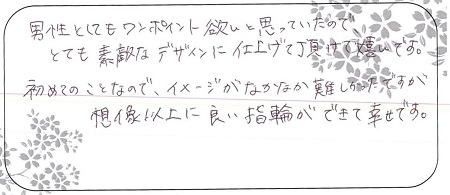 男性としてもワンポイント欲いと思っていたので
とても素敵なデザインに仕上げて頂けて嬉いです。
初めてのことなので、イメージがなかなか難しかったですが
想像以上に良い指輪ができて幸せです。